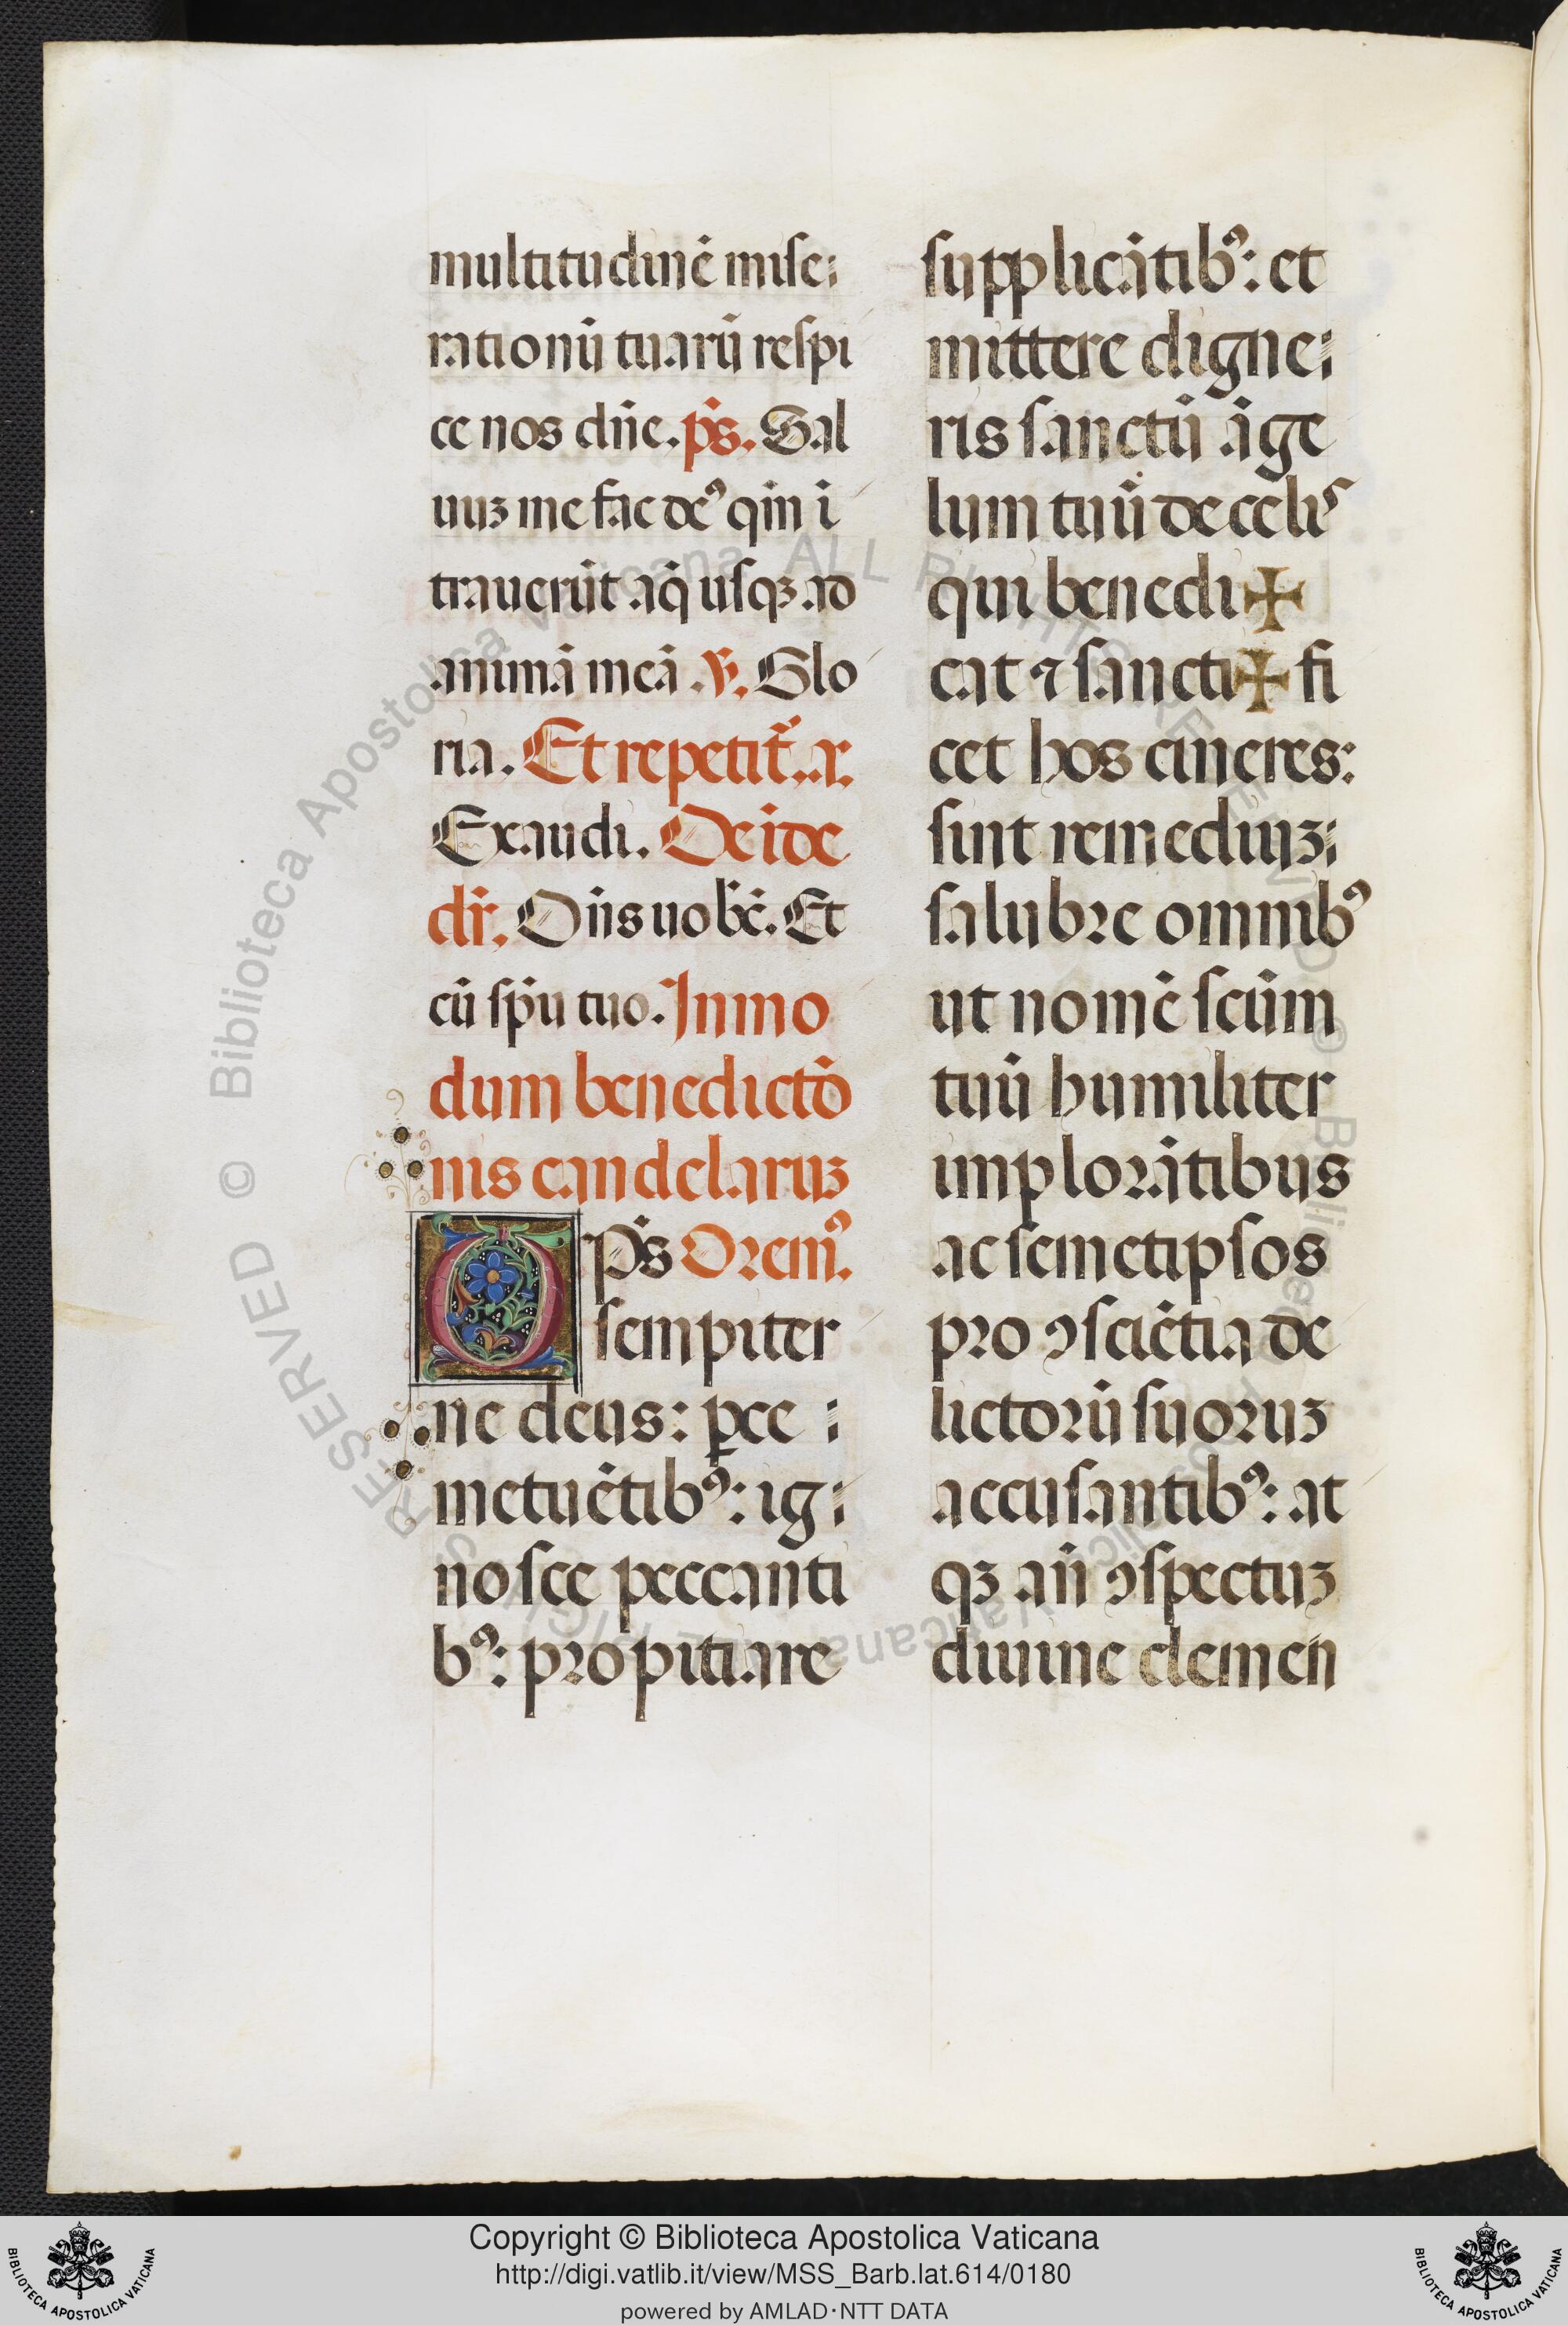 multitudinē mise
rationū tuarū respi
ce nos dn̄e. ps̄. Sal
uuꝫ me fac deꝰ qm̄ ī
trauerūt aq̄ usqꝫ ad
animā meā. ℣. Glo
ria. Et repetit̄. a.
Exaudi. Deīde
dr̄. Dn̄s uobc̄. Et
cū sp̄u tuo. In mo
dum benedictō
nis candelaruꝫ
O
p̄s Oremꝰ.
sempiter
ne deus: ꝑce
metuētibꝰ: ig
nosce peccanti
bꝰ: propitiare
supplicātibꝰ: et
mittere digne
ris sanctū āge
lum tuū de celis
qui benedi✠
cat ⁊ sancti✠fi
cet hos cineres:
sint remediuꝫ
salubre omnibꝰ
ut nomē scūm
tuū humiliter
implorātibus
ac semetipsos
pro ꝯsciētia de
lictorū suoruꝫ
accusantibꝰ: at
qꝫ an̄ ꝯspectuꝫ
diuine clemen
© Biblioteca Apostolica Vaticana ALL RIGHTS RESERVED
© Biblioteca Apostolica Vaticana ALL RIGHTS RESERVED
Copyright © Biblioteca Apostolica Vaticana
http://digi.vatlib.it/view/MSS_Barb.lat.614/0180
powered by AMLAD·NTT DATA
BIBLIOTECA APOSTOLICA VATICANA
BIBLIOTECA APOSTOLICA VATICANA